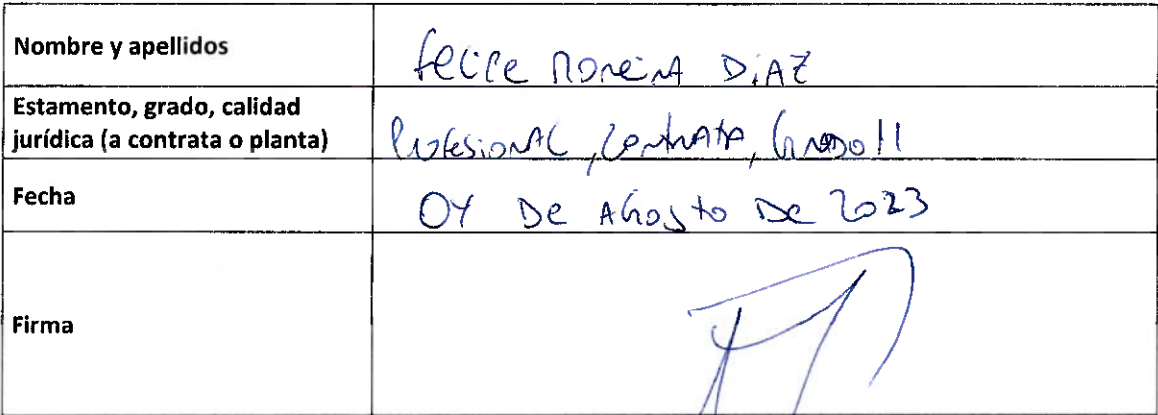 Nombre y apellidos
Felipe Moreira DiAZ
Estamento, grado, calidad
jurídica (a contrata o planta)
Profesional, Contrata, Grado 11
Fecha
04 De Agosto De 2023
Firma